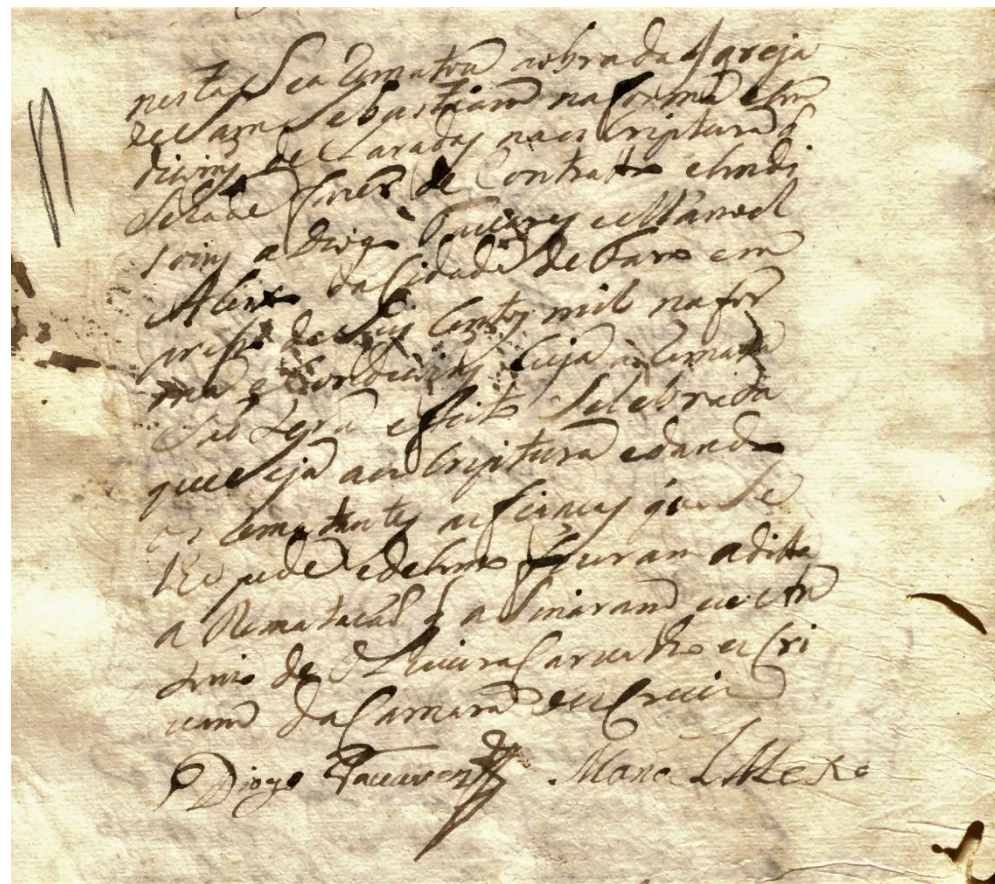 nesta Se a Rematou a obra da Igreja
de Sam Sebastiam na forma e Con
diçois declaradas na escriptura q
Selhade fazer de Contratto e Condi
soins a Diogo Tavares e Manoel
Aleixo da Cidade de Faro em
preso de Seis Centos mil na for
ma e Condiçois Cuja a Rema
Sao tera effeito Selebrada
que Seja a escriptura e dando
os Rematantes as fianças que Se
lhe pede e de Como fizeram a ditta
a Rematacaõ q a Sinaram eu
de Oliveira Carvalho escri
uam da Camara o escrevi
Diogo Tavares Manoel Aleixo